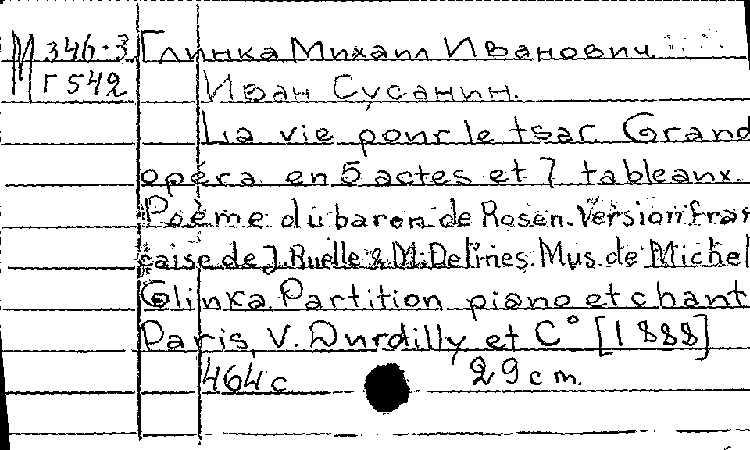 М 346-3 Глинка Михаил Иванович.
Г 542 Иван Сусанин.
La vie pour le tsar. Grand
opéra en 5 actes et 7 tableaux.
Poème du baron de Rosen. Version fran
çaise de J. Ruelle & M. Delines. Mus. de Michel
Glinka. Partition piano et chant
Paris, V. Durdilly et C° [1888]
464 c 29 cm.